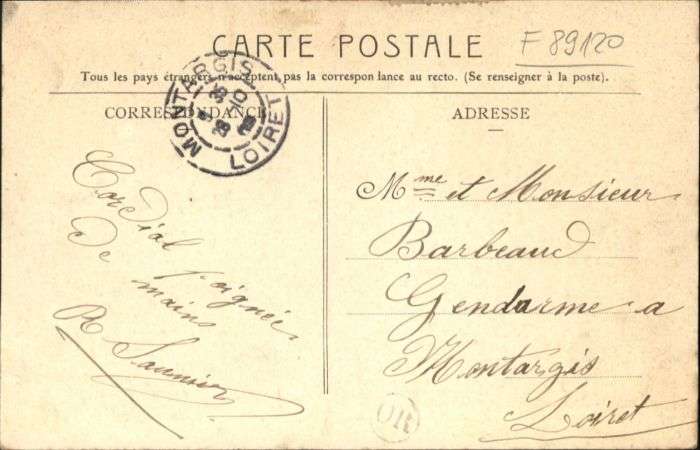 CARTE POSTALE
F 89120
Tous les pays étrangers n'acceptent pas la correspondance au recto. (Se renseigner à la poste).
CORRESPONDANCE
ADRESSE
MONTARGIS
LOIRET
Cordial
poignée
De mains
R Saunier
Mme et Monsieur
Barbeaud
Gendarme a
Montargis
Loiret
OR